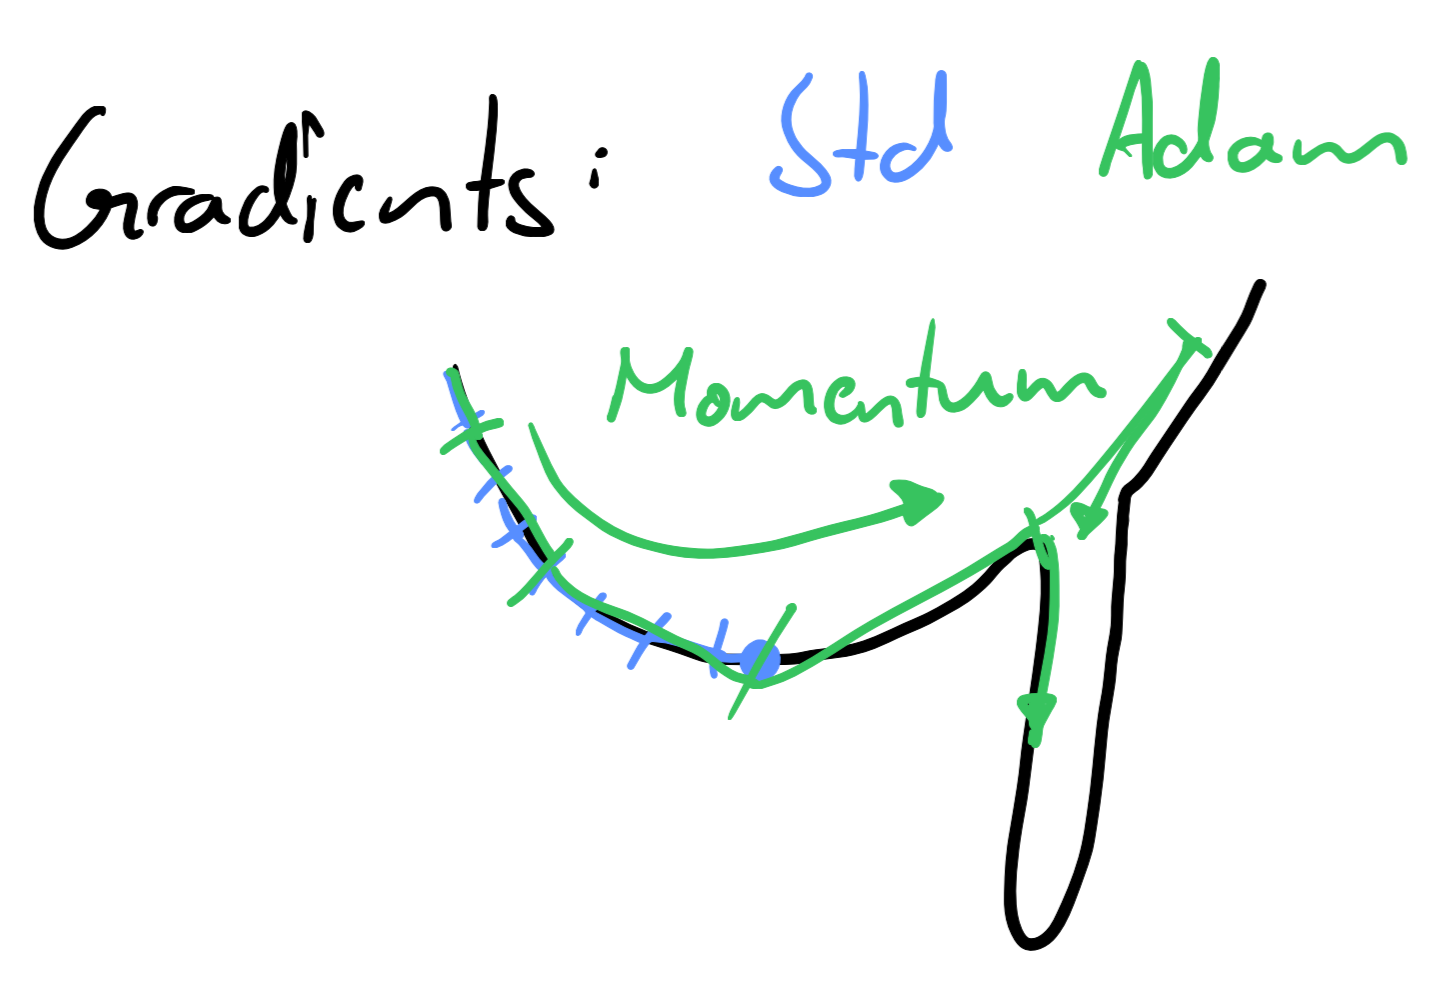 Gradients: Std Adam
Momentum